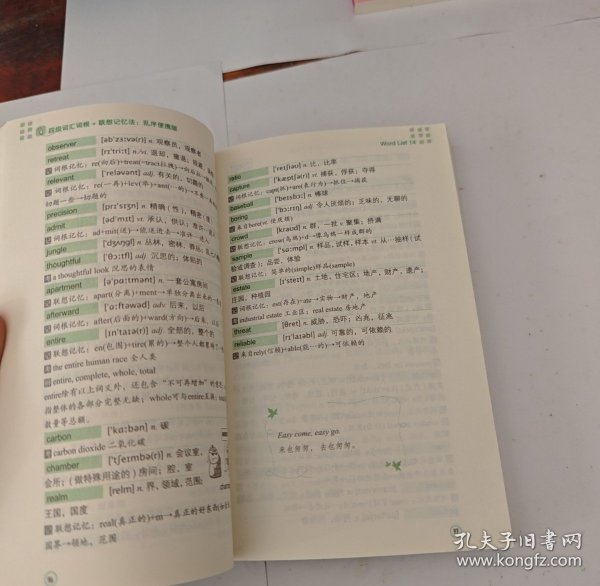 四级词汇词根+联想记忆法：乱序便携版
observer [əb'zɜːvə(r)] n. 观察员，观察者
retreat [rɪ'triːt] n./vi.
词根记忆：re(向后)+treat(=tract拉
relevant ['reləvənt] adj. 有关的，切题的
词根记忆：re(一再)+lev(举)+ant(…的)→
切题一些→切题的
precision [prɪ'sɪʒn] n. 精确（性），精密（度）
admit [əd'mɪt] vt. 承认，供认；准许
词根记忆：ad+mit(送)→能送进去→准许…进入
jungle ['dʒʌŋɡl] n. 丛林，密林，
thoughtful ['θɔːtfl] adj. 沉思的；体贴的
a thoughtful look 沉思的表情
apartment [ə'pɑːtmənt] n. 一套公寓房间
联想记忆：apart(分离)+ment→单独分离出来的
afterward ['ɑːftəwəd] adv. 后来，以后
词根记忆：after(后面的)+ward(方向)→后来，以后
entire [ɪn'taɪə(r)] adj. 全部的，整个的
联想记忆：en(包围)+tire(累的)→整个人都累
the entire human race 全人类
entire, complete, whole, total
entire除有以上词义外，还包含“不可再增加”的意
指整体的各部分完整无缺；whole可与entire互换；
数量等总额。
carbon ['kɑːbən] n. 碳
carbon dioxide 二氧化碳
chamber ['tʃeɪmbə(r)] n. 会议室，
会所；（做特殊用途的）房间；腔，室
realm [relm] n. 界，领域，范围；
王国，国度
联想记忆：real(真正的)+m→真正的好东西
国界→领地，范围
96
Word List 14
ratio ['reɪʃiəʊ] n. 比，比率
capture ['kæptʃə(r)] vt. 捕获，俘获；夺得
词根记忆：capt(抓)+ure(表行为)→抓住→捕获
baseball ['beɪsbɔːl] n. 棒球
boring ['bɔːrɪŋ] adj. 令人厌烦的；乏味的，无聊的
来自bore(vt. 使厌烦)
crowd [kraʊd] n. 群，一批 v. 聚集；挤满
联想记忆：crow(乌鸦)+d→像乌鸦一样成群的
sample ['sɑːmpl] n. 样品，试样，样本 vt. 从…抽样（试
验或调查）；品尝，体验
联想记忆：简单的(simple)样品(sample)
estate [ɪ'steɪt] n. 土地，住宅区；地产，财产，遗产；
庄园，种植园
词根记忆：est(存在)+ate→实物→财产，地产
industrial estate 工业区；real estate 房地产
threat [θret] n. 威胁，恐吓；凶兆，征兆
reliable [rɪ'laɪəbl] adj. 可靠的，可依赖的
来自rely(信赖)+able(能…的)→可依赖的
Easy come, easy go.
来也匆匆，去也匆匆。
97
孔夫子旧书网
www.kongfz.com